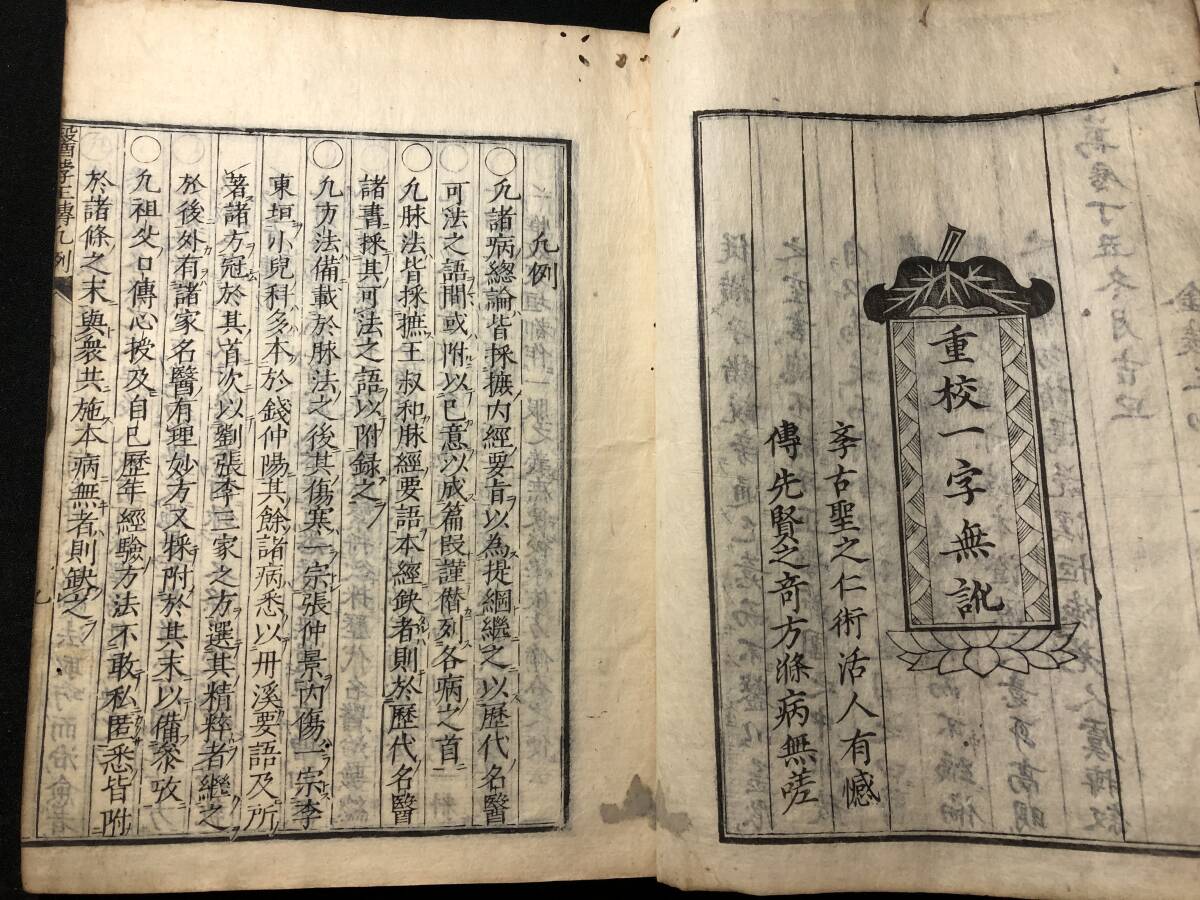 重校一字無訛
孝古聖之仁術活人有憾
傳先賢之奇方滌病無蹉
凡例
○凡諸病總論皆採摭内經要旨以為提綱繼之以歷代名醫
可法之語間或附以已意以成篇叚謹僭列各病之首
○凡脉法皆採摭王叔和脉經要語本經缺者則於歷代名醫
諸書採其可法之語以附録之
○凡方法備載於脉法之後其傷寒一宗張仲景内傷一宗李
東垣小兒科多本於錢仲陽其餘諸病悉以丹溪要語及所
著諸方冠於其首次以劉張李三家之方選其精粹者繼之
於後外有諸家名醫有理妙方又採附於其末以備叅攷
○凡祖父口傳心授及自已歷年經驗方法不敢私匿悉皆附
於諸條之末與衆共施本病無者則缺之
醫學正傳凡例